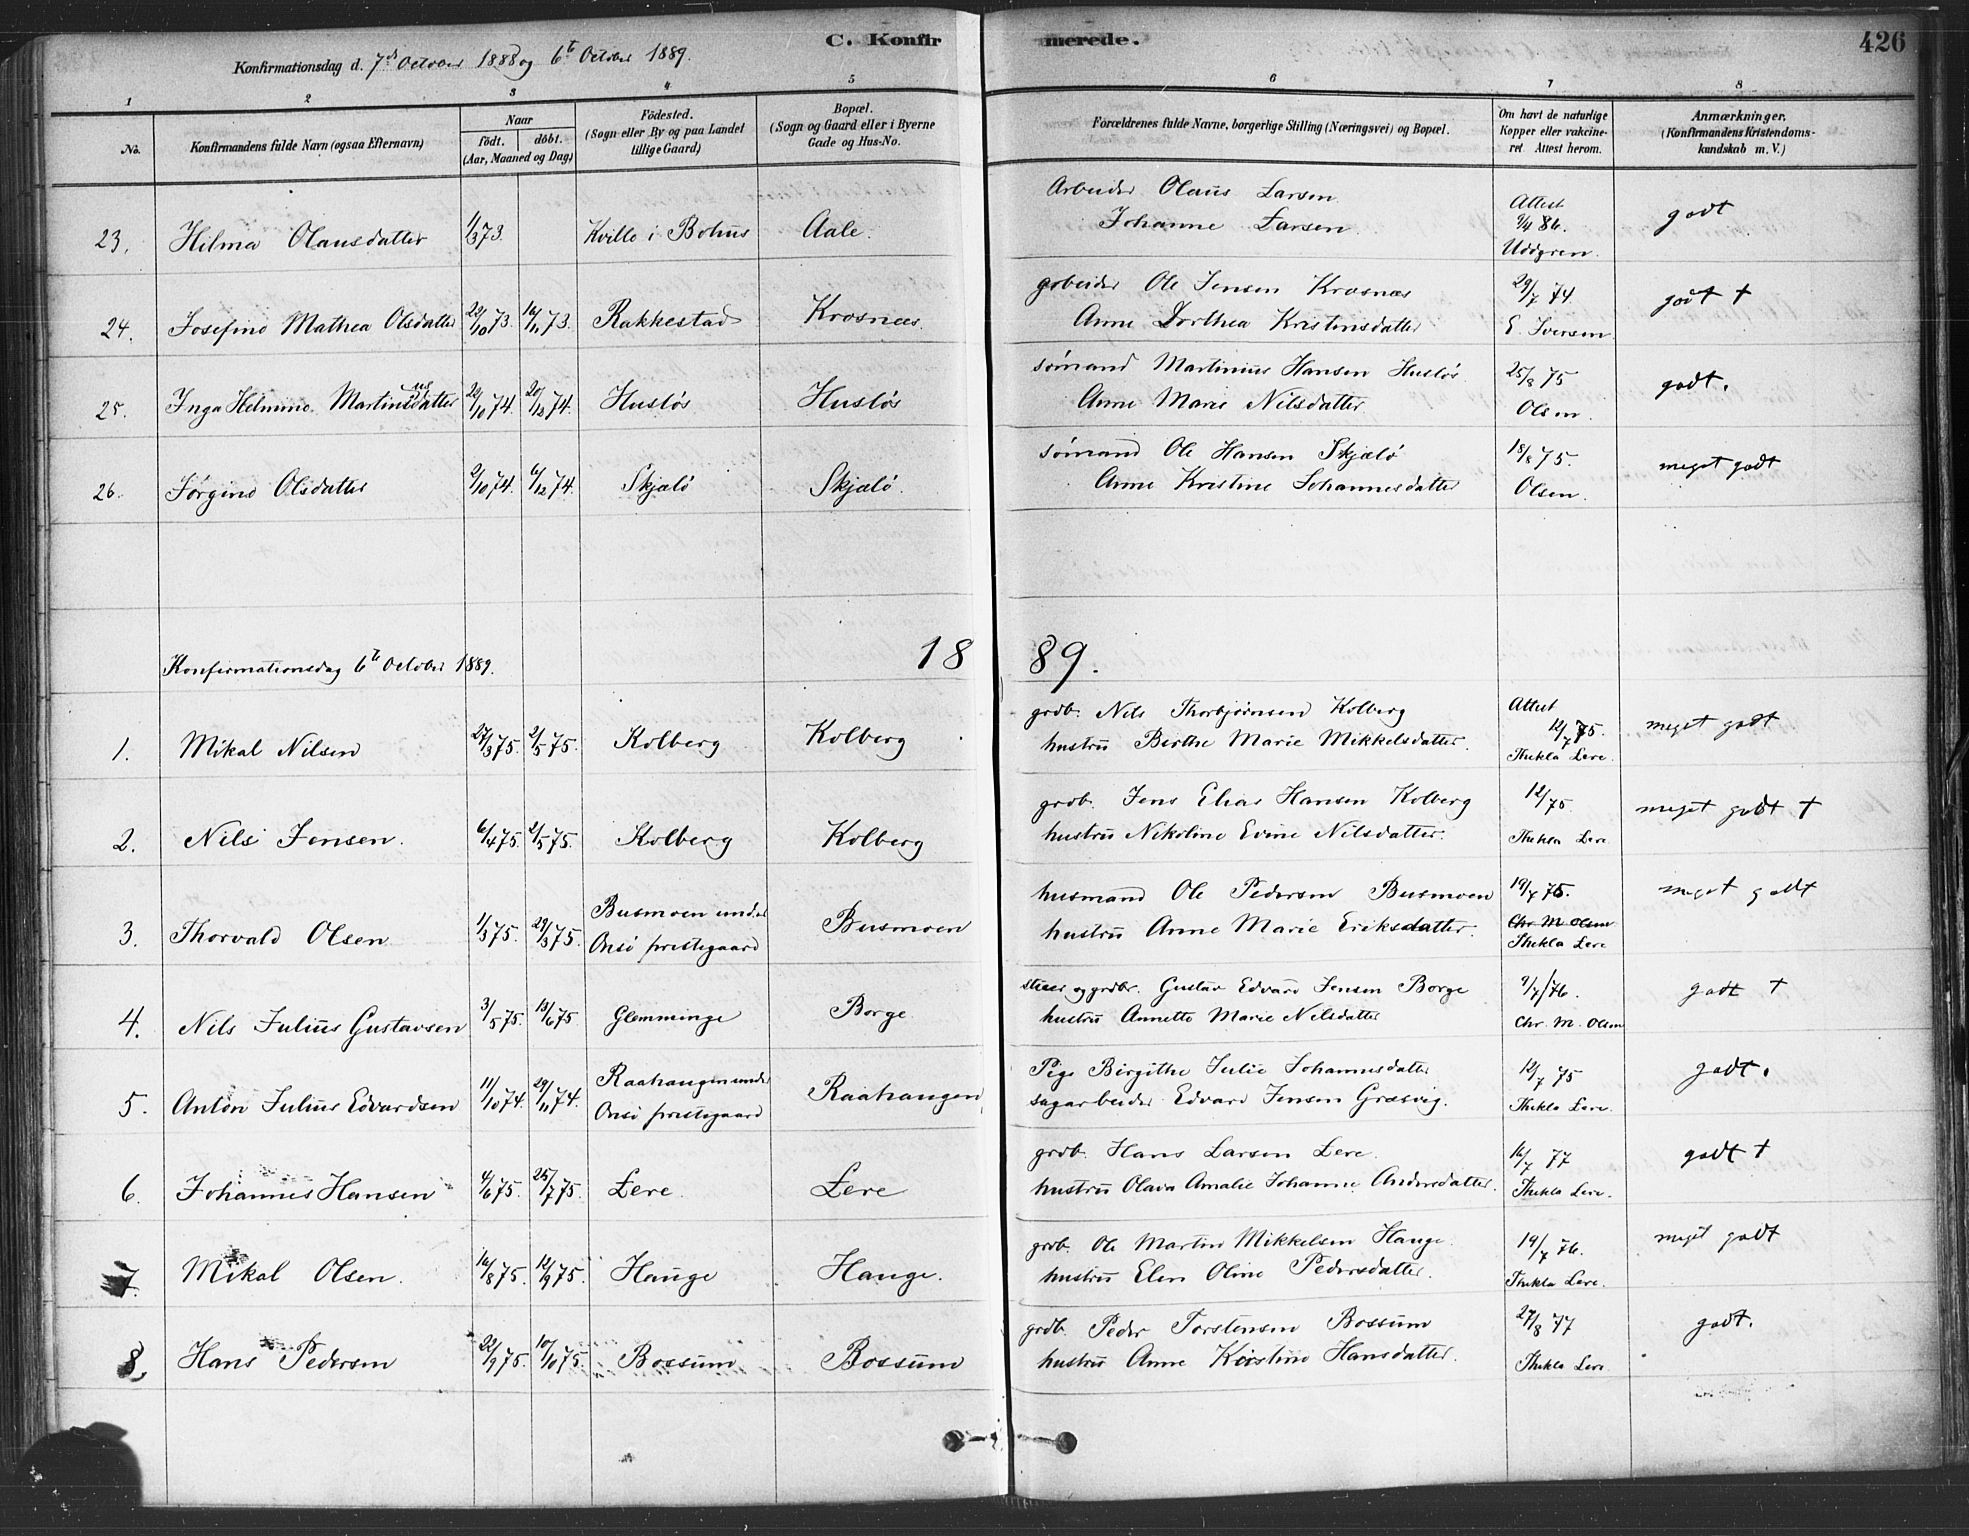 C. Konfirmerede.
426
Konfirmationsdag d. 7de October 1888 og 6te October 1889.
1 2 3 4 5 6 7 8
No.
Konfirmandens fulde Navn (ogsaa Efternavn)
Naar
födt. döbt.
(Aar, Maaned og Dag)
Födested.
(Sogn eller By og paa Landet
tillige Gaard)
Bopæl.
(Sogn og Gaard eller i Byerne
Gade og Hus-No.
Forældrenes fulde Navne, borgerlige Stilling (Næringsvei) og Bopæl.
Om havt de naturlige
Kopper eller vakcine-
ret. Attest herom.
Anmærkninger.
(Konfirmandens Kristendoms-
kundskab m. V.)
23. Hilma Olausdatter 1/3 73. Kville i Bohus Aale.
Arbeider Olaus Larsen
Johanne Larsen.
Attest
9/4 86.
Uddgren.
godt
24. Josefine Mathea Olsdatter 22/10 73. 16/11 73. Rakkestad Krosnæs.
Ole Jensen Krosnæs
Anne Dorthea Kristensdatter
29/7 74.
E. Iversen
godt +
25. Inga Helmine Martinusdatter 29/10 74. 20/12 74. Husløs Husløs
sømand Martinius Hansen Husløs
Anne Marie Nilsdatter
25/8 75
Olsen.
godt.
26. Jørgine Olsdatter 2/10 74. 6/12 74. Skjælø Skjælø.
sømand Ole Hansen Skjælø
Anne Kristine Johannesdatter
18/8 75.
Olsen.
meget godt
Konfirmationsdag 6te October 1889. 18 89.
1. Mikal Nilsen 27/3 75. 2/5 75. Kolberg Kolberg
grdb. Nils Thorbjørnsen Kolberg
hustru Birthe Marie Mikkelsdatter.
Attest
12/7 75.
Thekla Lere.
meget godt
2. Nils Jensen. 6/4 75. 2/5 75. Kolberg Kolberg
grdb. Jens Elias Hansen Kolberg
hustru Nikoline Evine Nilsdatter.
12/75
Thekla Lere
meget godt +
3. Thorvald Olsen 1/3 75. 29/3 75. Busmoen under
Onsö prestegaard
Busmoen
husmand Ole Pedersen Busmoen
hustru Anne Marie Eriksdatter.
19/7 75.
Chr M Olsen
Thekla Lere
meget godt
4. Nils Julius Gustavsen 3/5 75. 13/6 75 Glemminge Borge
og grdbr. Gustav Edvard Jensen Borge
hustru Annette Marie Nilsdatter
9/7/76.
Chr. M. Olsen
godt +
5. Anton Julius Edvardsen 11/10 74. 29/11 74. Raahaugen under
Onsö prestegaard
Raahaugen
Pige Birgithe Julie Johannesdatter
sagarbeider Edvard Jensen Græsvig.
12/7 75
Thekla Lere.
godt.
6. Johannes Hansen 4/6 75. 25/7 75. Lere. Lere
grdb. Hans Larsen Lere.
hustru Olava Amalie Johanne Andersdatter.
16/7 77
Thekla Lere.
godt +
7. Mikal Olsen. 16/8 75. 12/9 75. Hauge Hauge.
grdb. Ole Martin Mikkelsen Hauge.
hustru Elen Oline Pedersdatter.
19/7 76.
Thekla Lere.
meget godt
8. Hans Pedersen 22/9 75. 10/10 75. Bossum Bossum
grdb. Peder Torstensen Bossum
hustru Anne Kristine Hansdatter.
27/8 77
Thekla Lere.
godt.